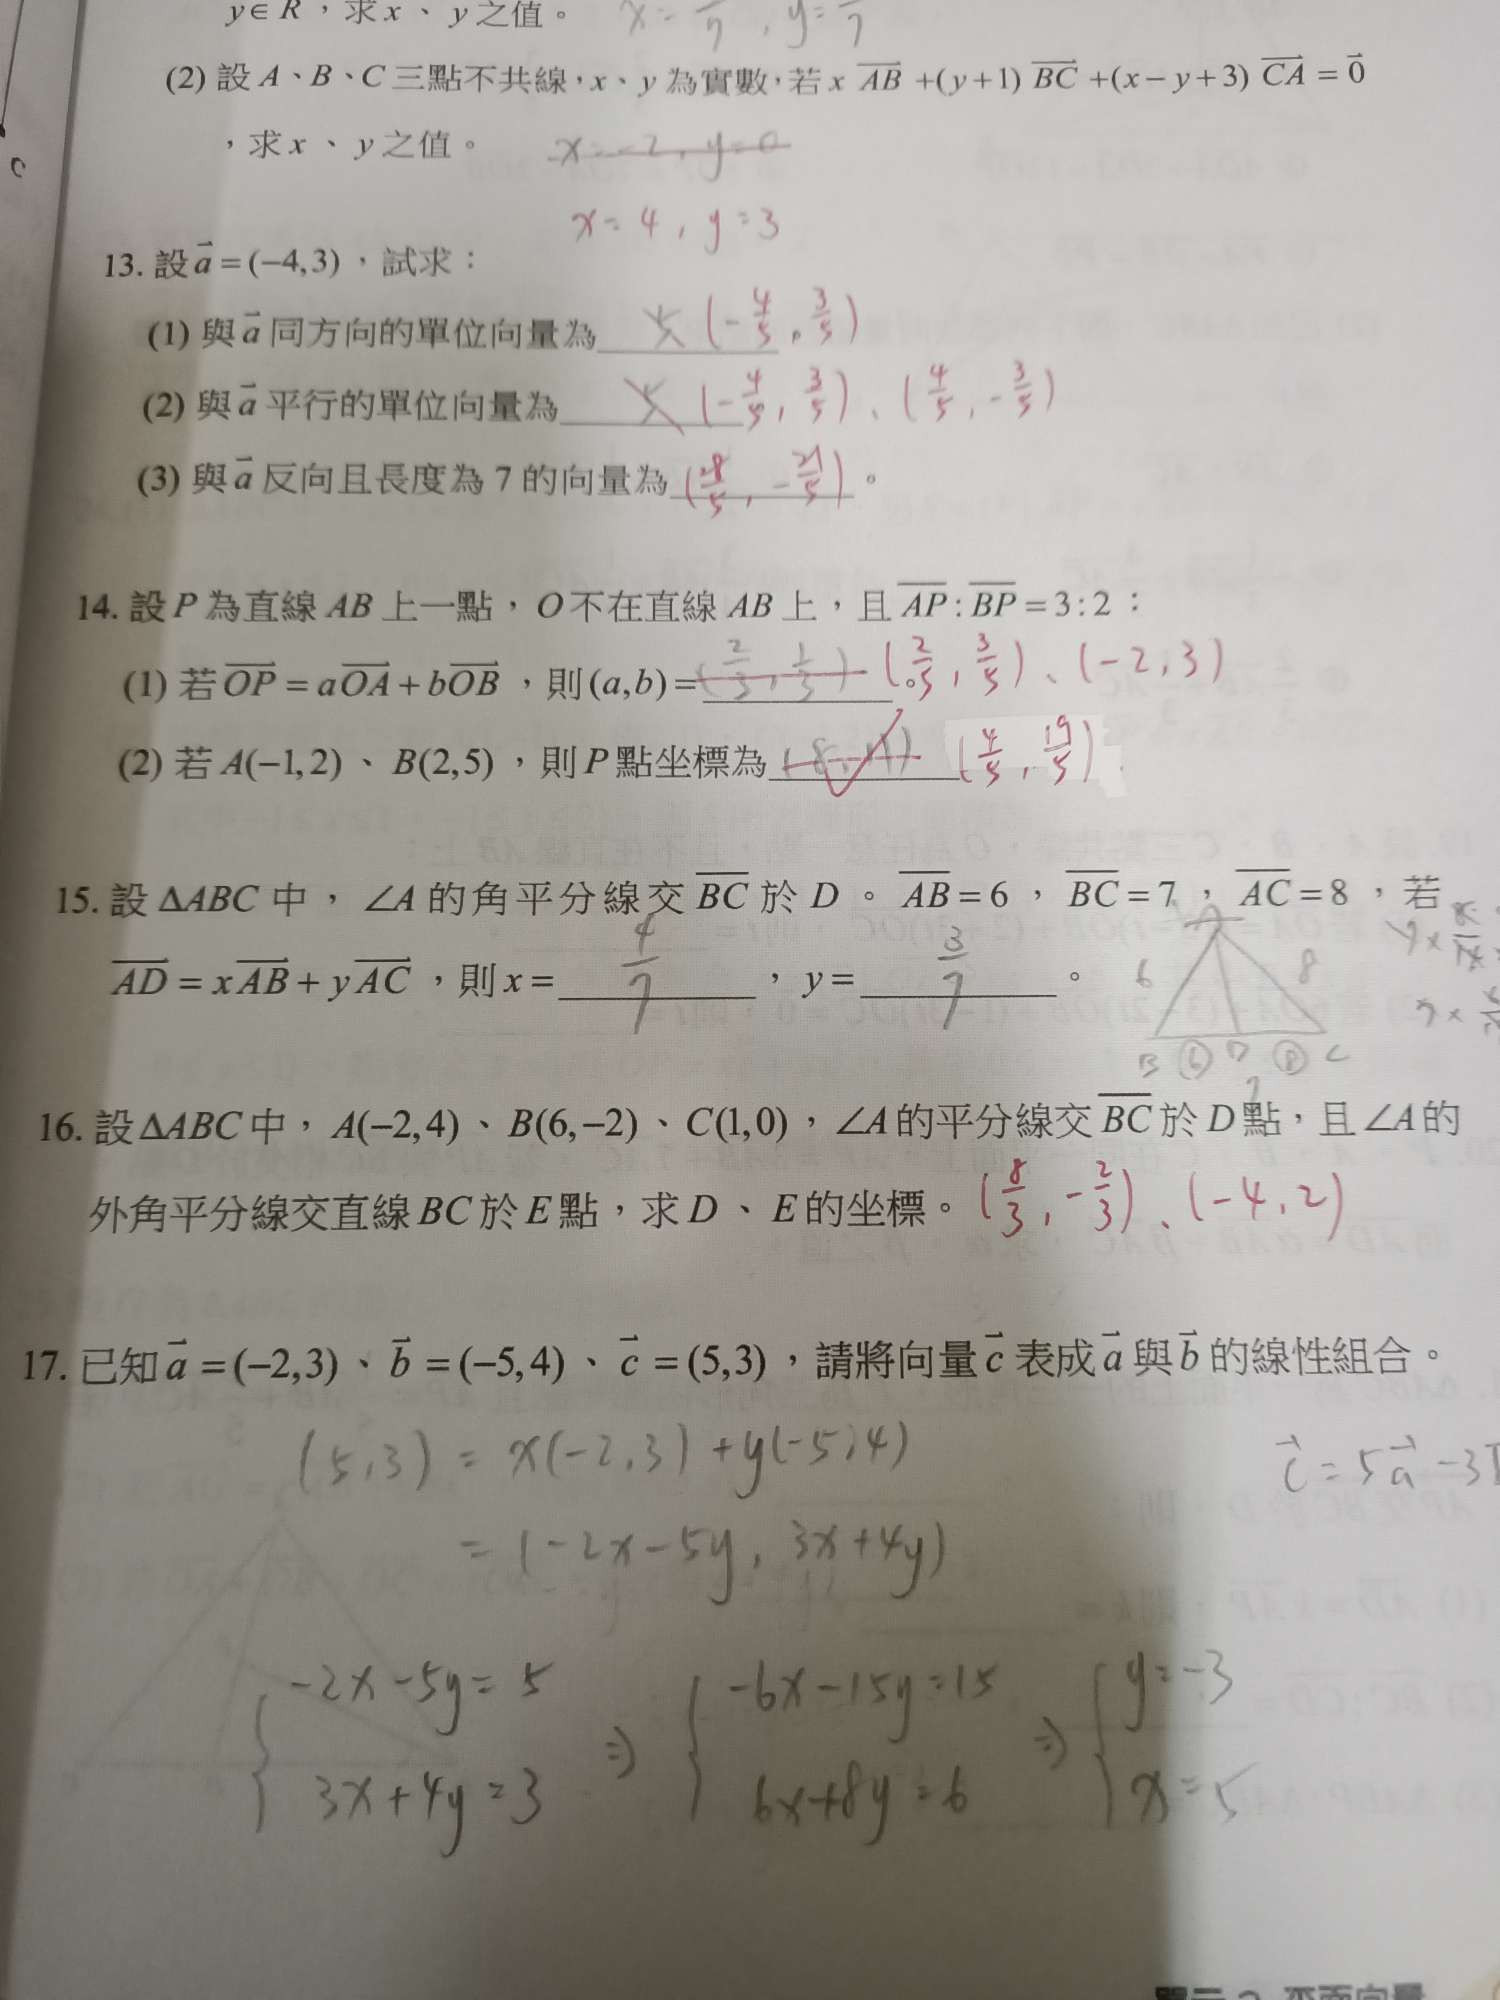 y∈R，求x、y之值。 x= /7 , y= /7
(2) 設A、B、C三點不共線，x、y為實數，若x AB +(y+1) BC +(x−y+3) CA = 0
，求x、y之值。 x=-2, y=0
x=4, y=3
13. 設a=(−4,3)，試求：
(1) 與a同方向的單位向量為 (-4/5, 3/5)
(2) 與a平行的單位向量為 (-4/5, 3/5)、(4/5, -3/5)
(3) 與a反向且長度為7的向量為 (28/5, -21/5)。
14. 設P為直線AB上一點，O不在直線AB上，且AP:BP=3:2：
(1) 若OP=aOA+bOB，則(a,b)= (2/3, 1/3) (2/5, 3/5)、(-2,3)
(2) 若A(−1,2)、B(2,5)，則P點坐標為 (8,11) (4/5, 19/5)
15. 設ΔABC中，∠A的角平分線交BC於D。AB=6，BC=7，AC=8，若
AD=xAB+yAC，則x= 4/7，y= 3/7。
A
6 8
B ⑥ D ⑧ C
7
16. 設ΔABC中，A(−2,4)、B(6,−2)、C(1,0)，∠A的平分線交BC於D點，且∠A的
外角平分線交直線BC於E點，求D、E的坐標。 (8/3, -2/3)、(-4,2)
17. 已知a=(−2,3)、b=(−5,4)、c=(5,3)，請將向量c表成a與b的線性組合。
(5,3) = x(-2,3)+y(-5,4)
c=5a-3
= (-2x-5y, 3x+4y)
{-2x-5y=5 ⇒ {-6x-15y=15 ⇒ {y=-3
3x+4y=3 6x+8y=6 x=5
平面向量